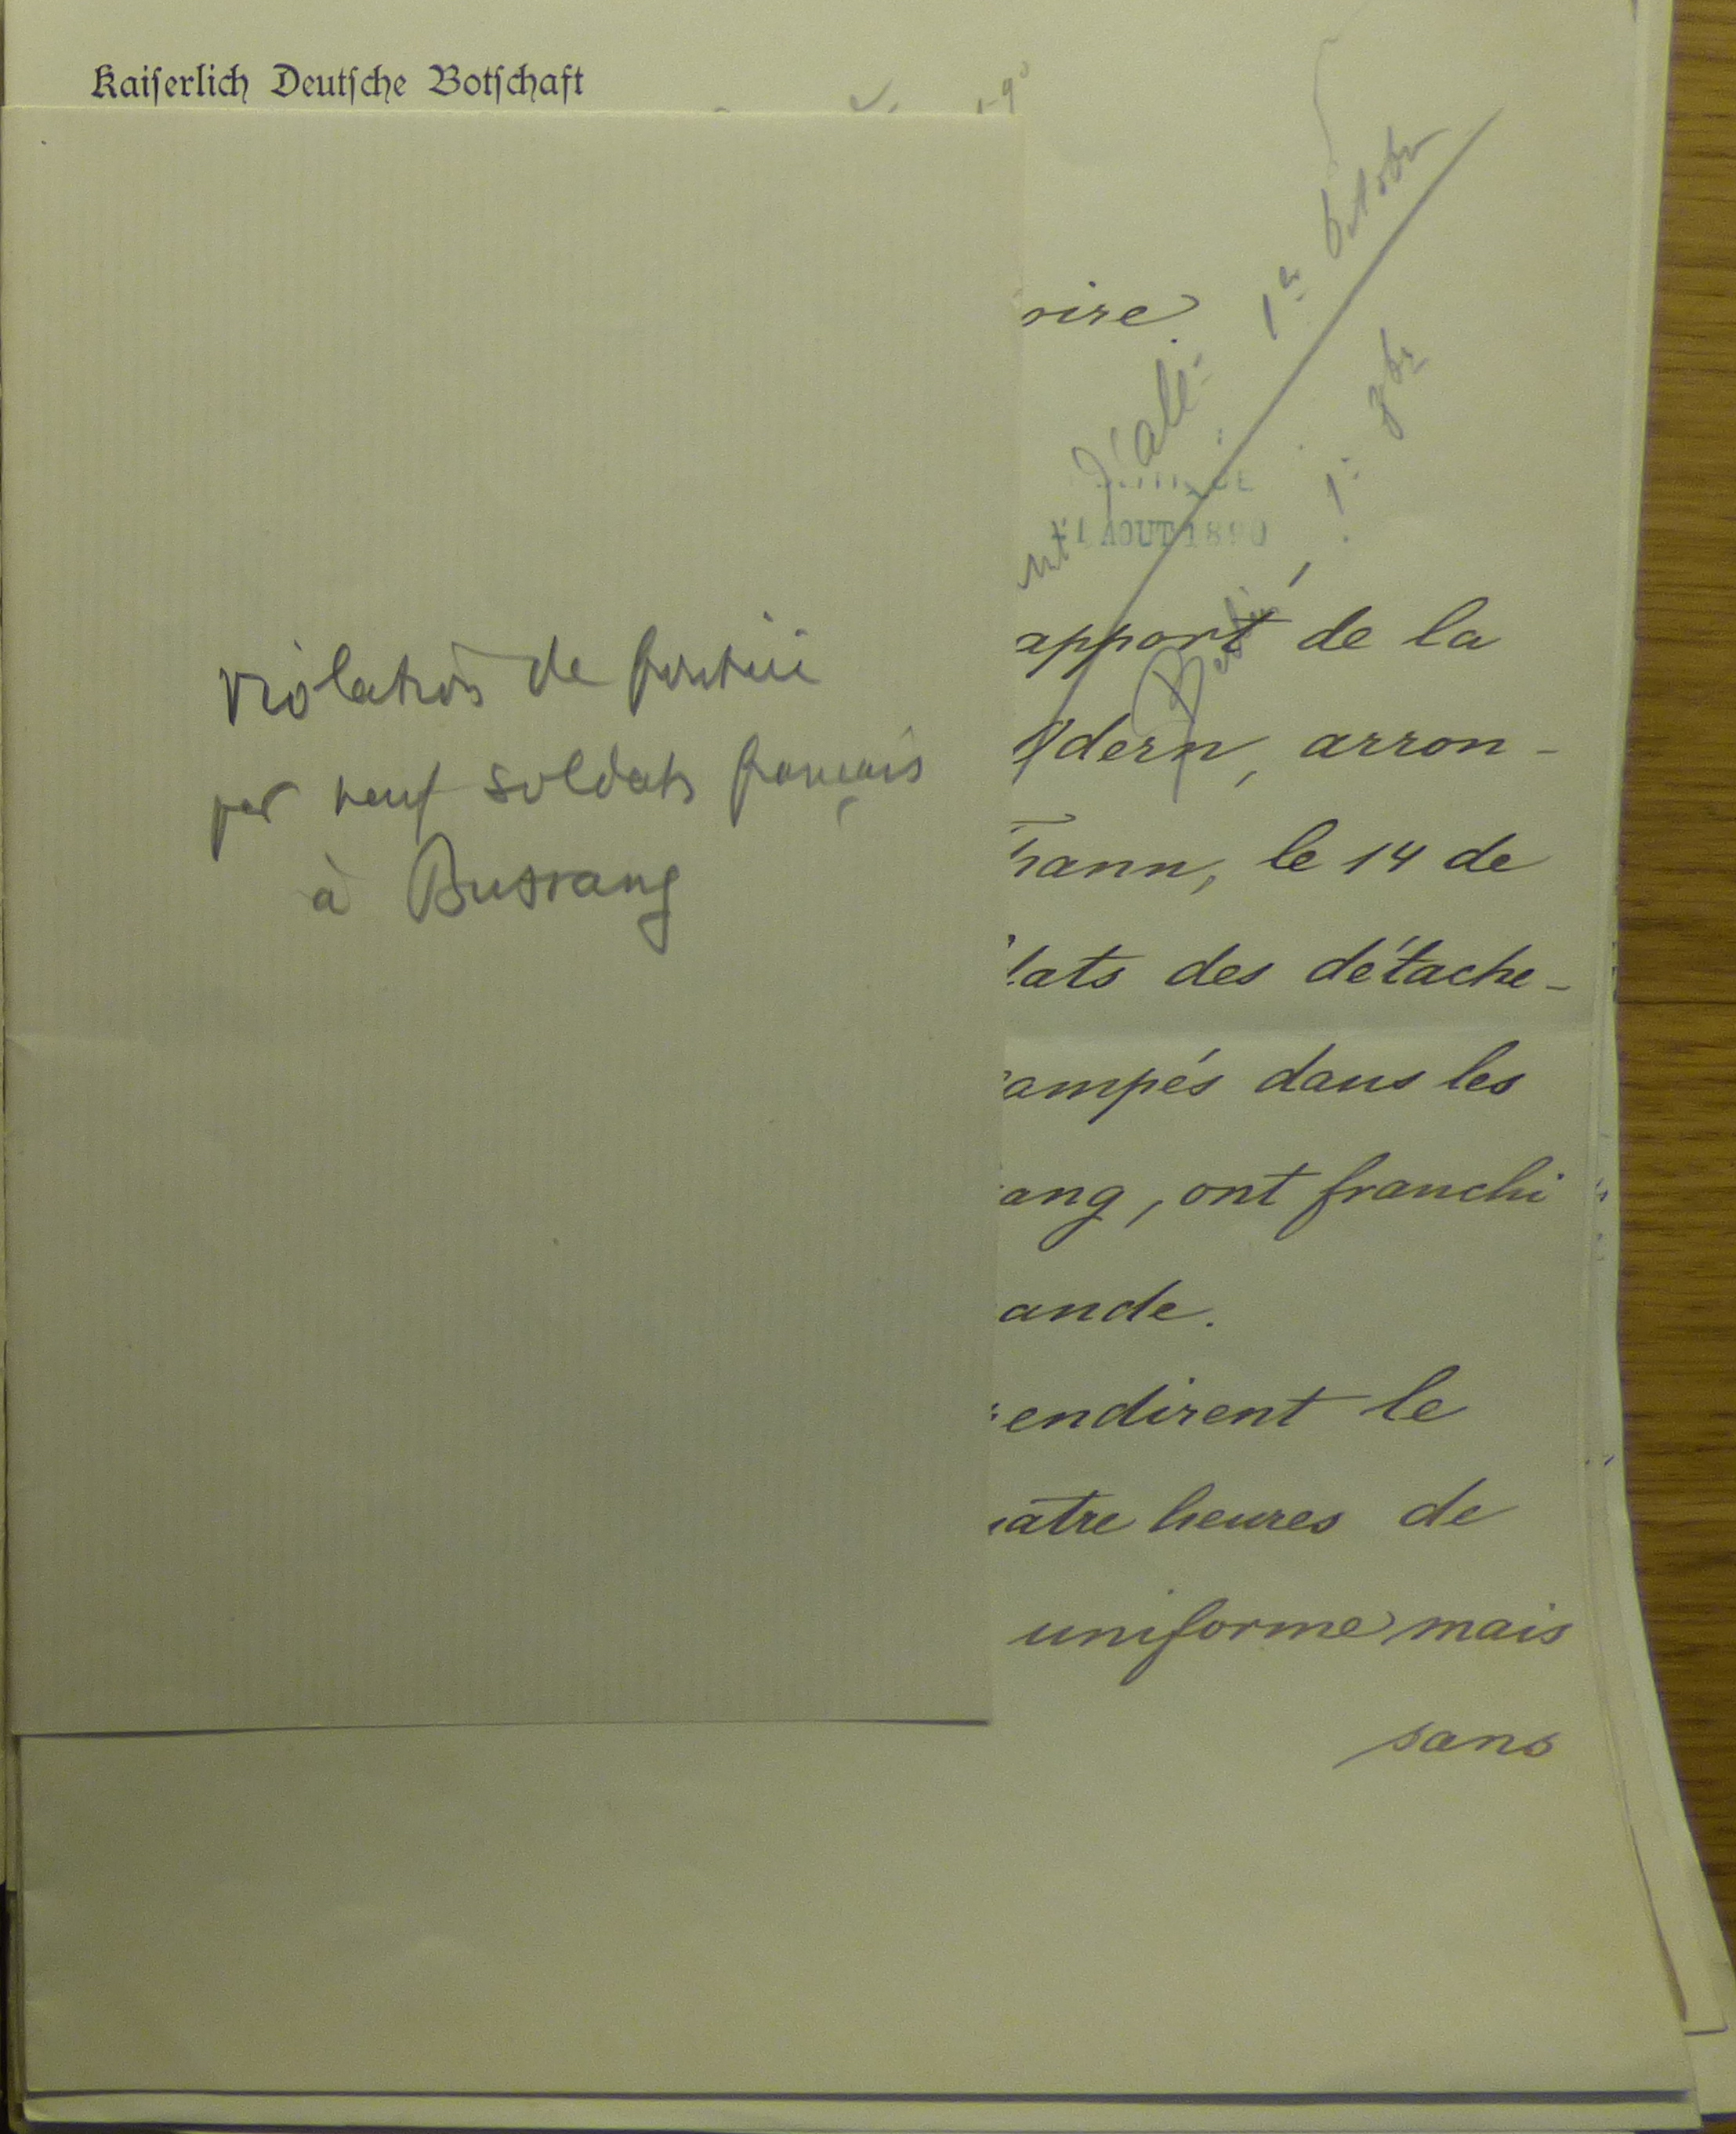 Kaiserlich Deutsche Botschaft
violation de frontière
par neuf soldats français
à Bussang
rire
1er Octobre
d'all:
1 AOUT 1890
Berlin, 1:
apport de la
dern, arron-
hann, le 14 de
dats des détache-
ampés dans les
ang, ont franchi
ande.
endirent le
atre heures de
uniforme mais
sans